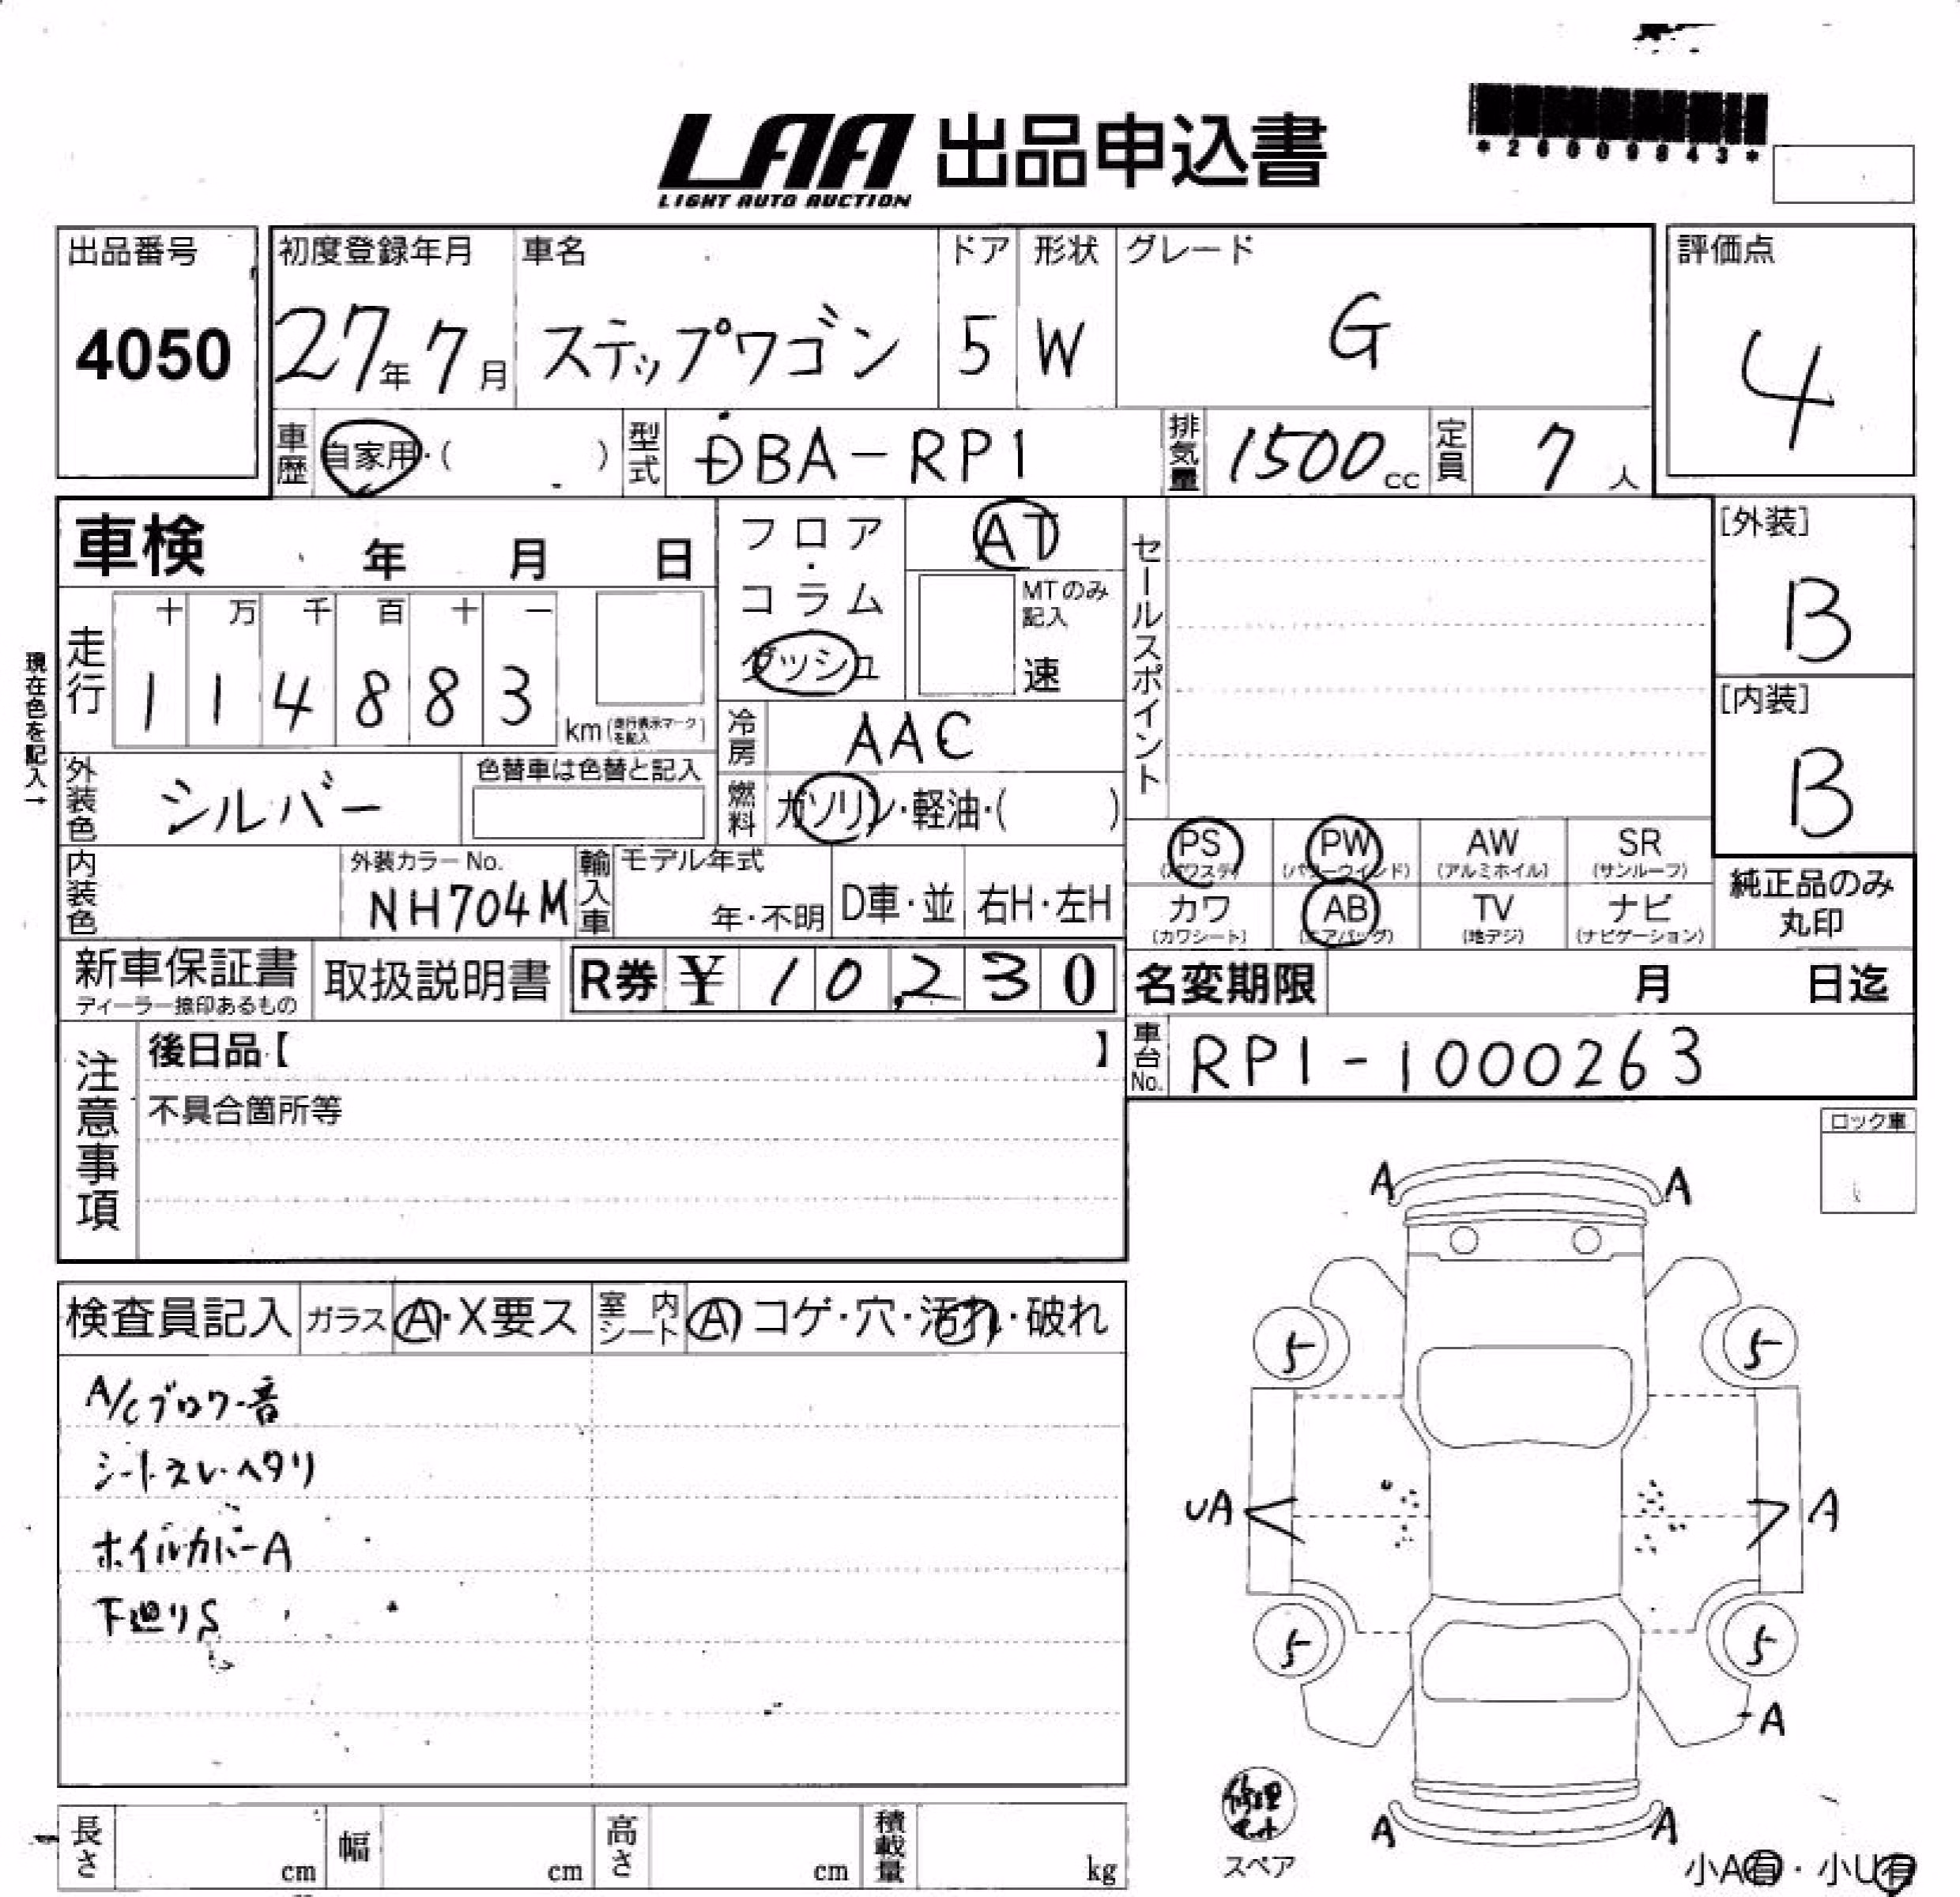 LAA 出品申込書
LIGHT AUTO AUCTION
*26009843*
出品番号
4050
初度登録年月
27年7月
車名
ステップワゴン
ドア
5
形状
W
グレード
G
評価点
4
車歴
自家用・( )
型式
DBA-RP1
排気量
1500cc
定員
7人
車検 年 月 日
フロア・コラム
ダッシュ
AT
MTのみ記入
速
セールスポイント
[外装]
B
[内装]
B
現在色を記入→
走行
十 万 千 百 十 一
1 1 4 8 8 3
km(走行表示マークを記入)
冷房
AAC
外装色
シルバー
色替車は色替と記入
燃料
ガソリン・軽油・( )
内装色
外装カラーNo.
NH704M
輸入車
モデル年式
年・不明
D車・並
右H・左H
PS
(パワステ)
PW
(パワーウインド)
AW
(アルミホイル)
SR
(サンルーフ)
カワ
(カワシート)
AB
(エアバッグ)
TV
(地デジ)
ナビ
(ナビゲーション)
純正品のみ
丸印
新車保証書
ディーラー捺印あるもの
取扱説明書
R券 ¥10,230
名変期限 月 日迄
車台No.
RP1-1000263
注意事項
後日品【 】
不具合箇所等
ロック車
検査員記入
ガラス
A・X要ス
室内シート
A コゲ・穴・汚れ・破れ
A/Cブロワー音
シートスレ・ヘタリ
ホイルカバーA
下廻りS
A A
5 5
UA A
5 5
A
A A
修理キット
スペア
小A有・小U有
長さ cm
幅 cm
高さ cm
積載量 kg